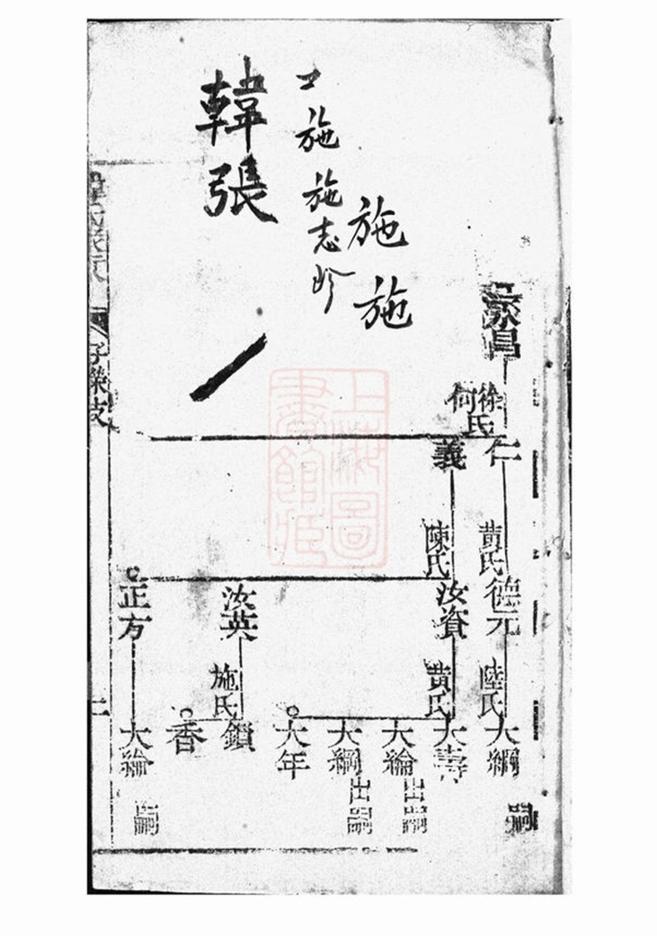 永昌
徐氏
何氏
仁
義
黄氏
陳氏
德元
汝資
汝英
正方
陸氏
黄氏
施氏
大綱 嗣
大壽
大綸 出嗣
大綱 出嗣
大年
鎖
香
大綸 嗣
施
施
施
施志
韓張
上海圖書館藏